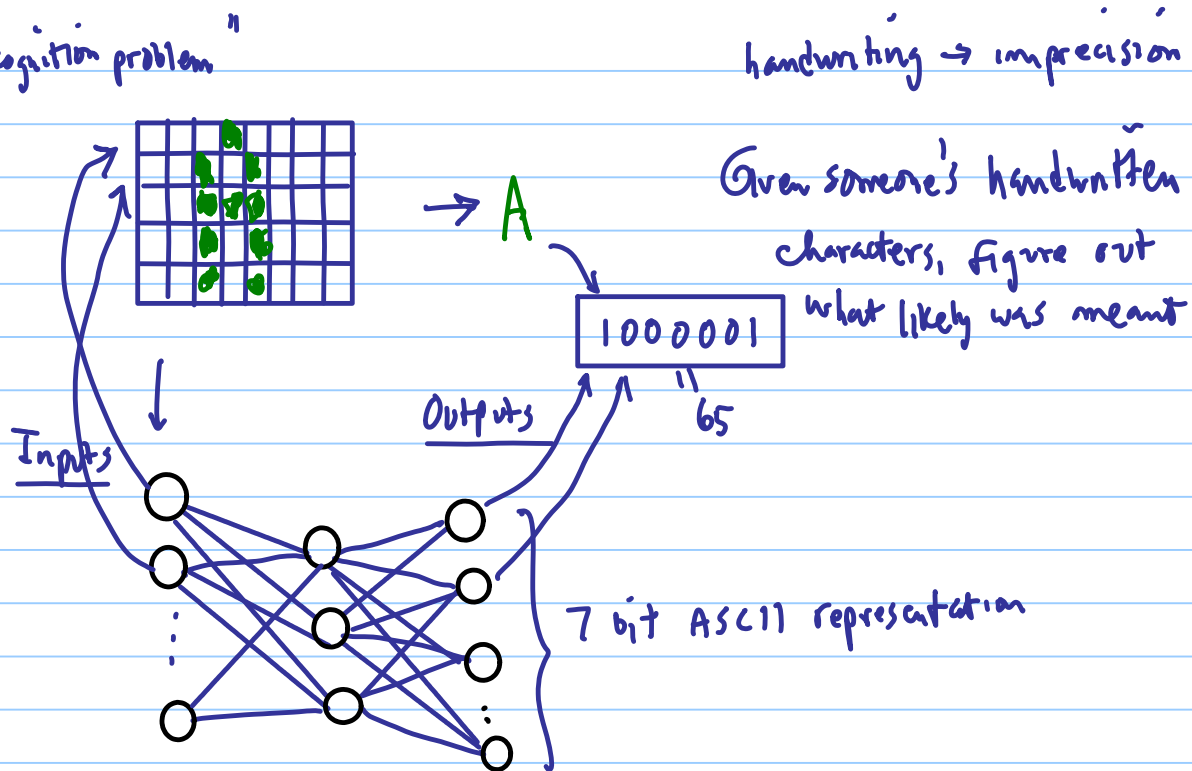 ognition problem"
handwriting → imprecision
Given someone's handwritten
characters, figure out
what likely was meant
→ A
1000001
65
Outputs
Inputs
7 bit ASCII representation